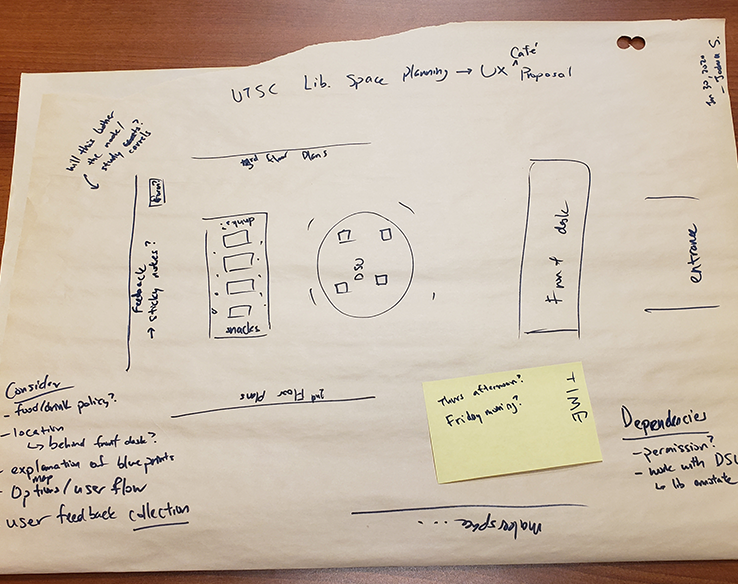 UTSC Lib. Space Planning → UX Café Proposal
Jan 30 2020
Will this bother
the
study
carrels
3rd Floor Plans
Feedback
→ sticky notes?
drinks:
snacks
DSU
front desk
entrance
Consider
- food/drink policy?
- location
↳ behind front desk?
- explanation of blueprints
map
- Options/user flow
user feedback collection
2nd Floor Plans
TIME
Thurs afternoon?
Friday morning?
Dependencies
- permission?
- work with DSU
↳ lib annotate
makerspace...